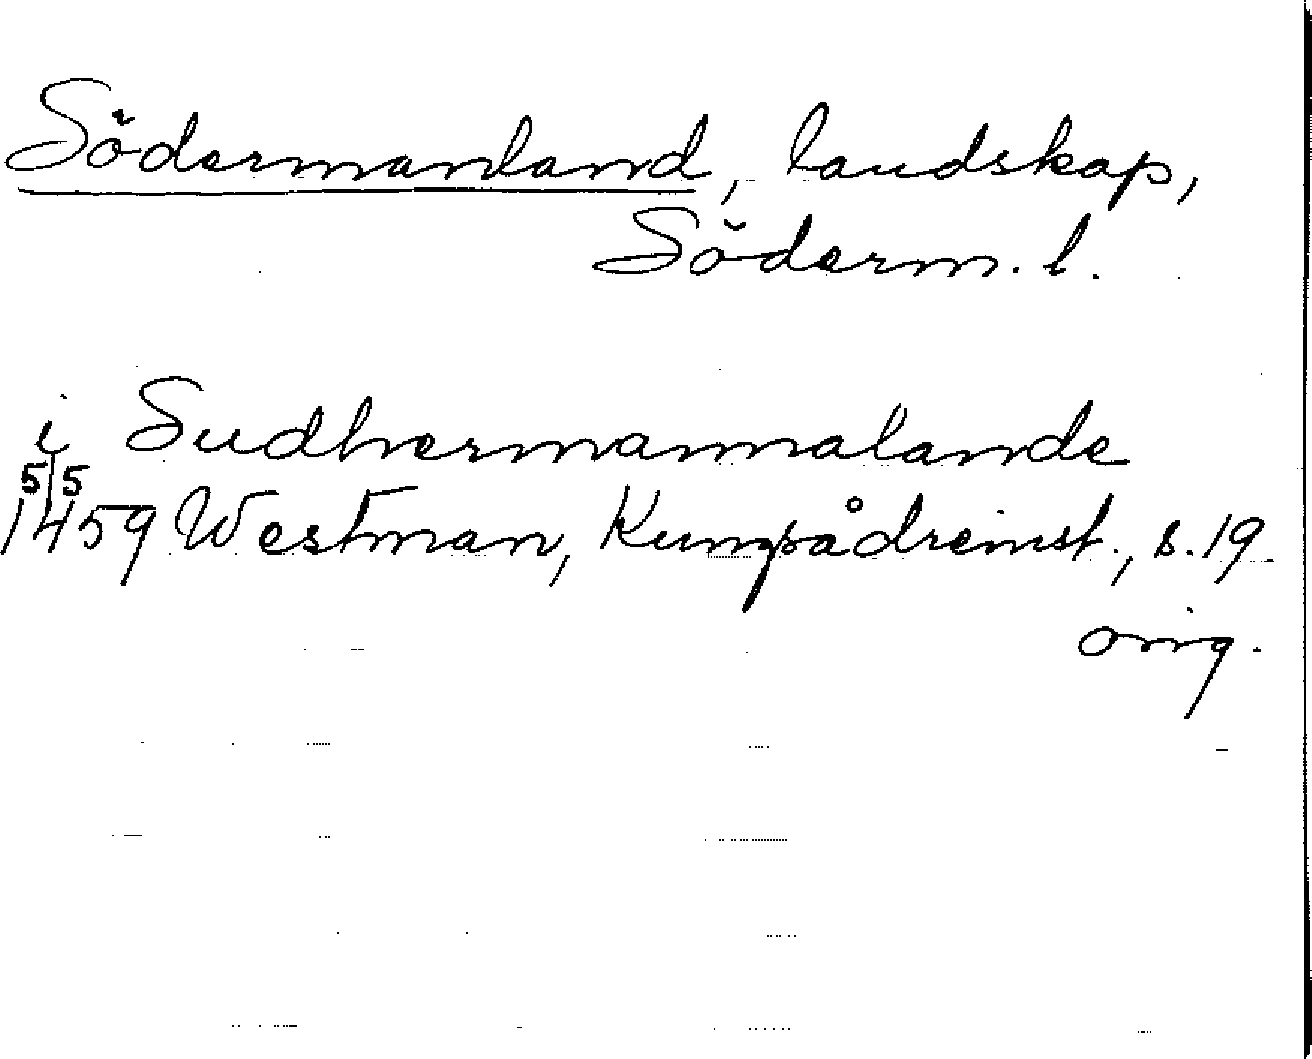 Södermanland, landskap,
Söderm. l.
i Sudhermannalande
5/5
1459 Westman, Kungsådreinst., s. 19
orig.